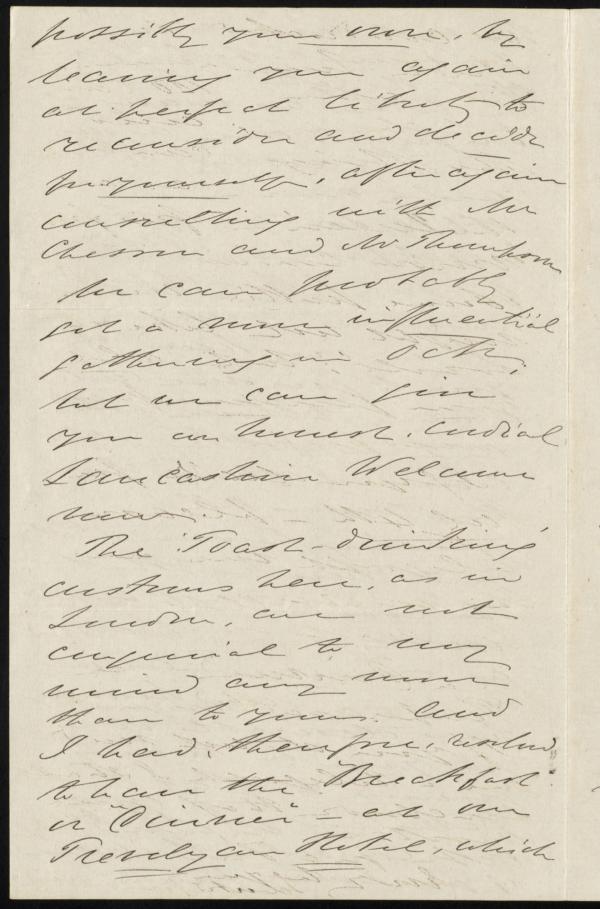 possibly your own, by
leaving you again
at perfect liberty to
reconsider and decide
for yourself, after again
consulting with Mr
Chesson and Mr Thompson
We can probably
get a more influential
gathering in Octr,
but we can give
you an honest, cordial
Lancashire Welcome
now.
The 'Toast-drinking'
customs here, as in
London, are not
congenial to my
mind any more
than to yours. And
I had, therefore, resolved
to have the "Breakfast"
or "Dinner" - at our
Trevelyan Hotel, which